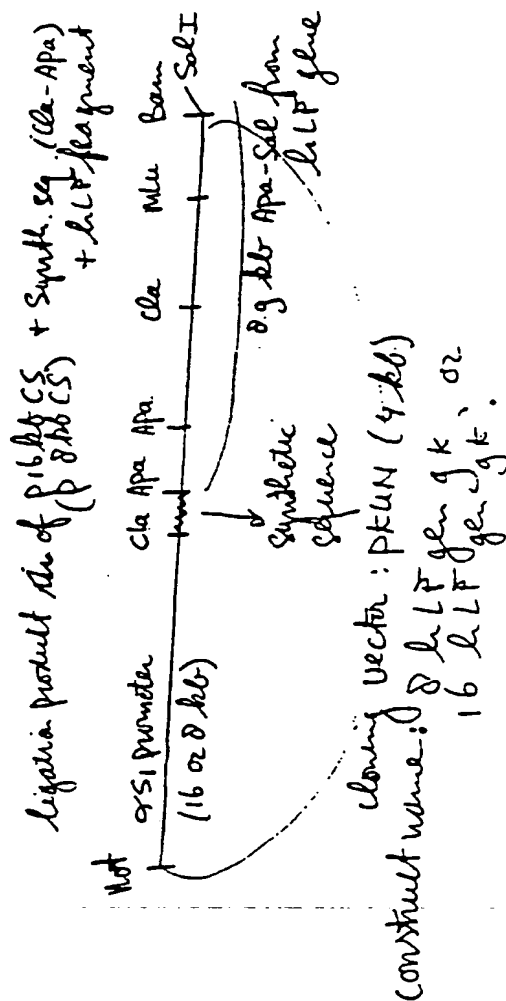 ligation product of p16 kb CS + Synth. seq. (Cla-Apa)
(p 8 kb CS) + hLF fragment
Not
αS1 promoter
(16 or 8 kb)
Cla Apa Apa Cla Mlu Bam
Sal I
Synthetic
sequence
8.9 kb Apa-Sal from
hLF gene
cloning vector : pKUN (4 kb)
construct name: 8 hLF gen 9 k, or
16 hLF gen 9 k.